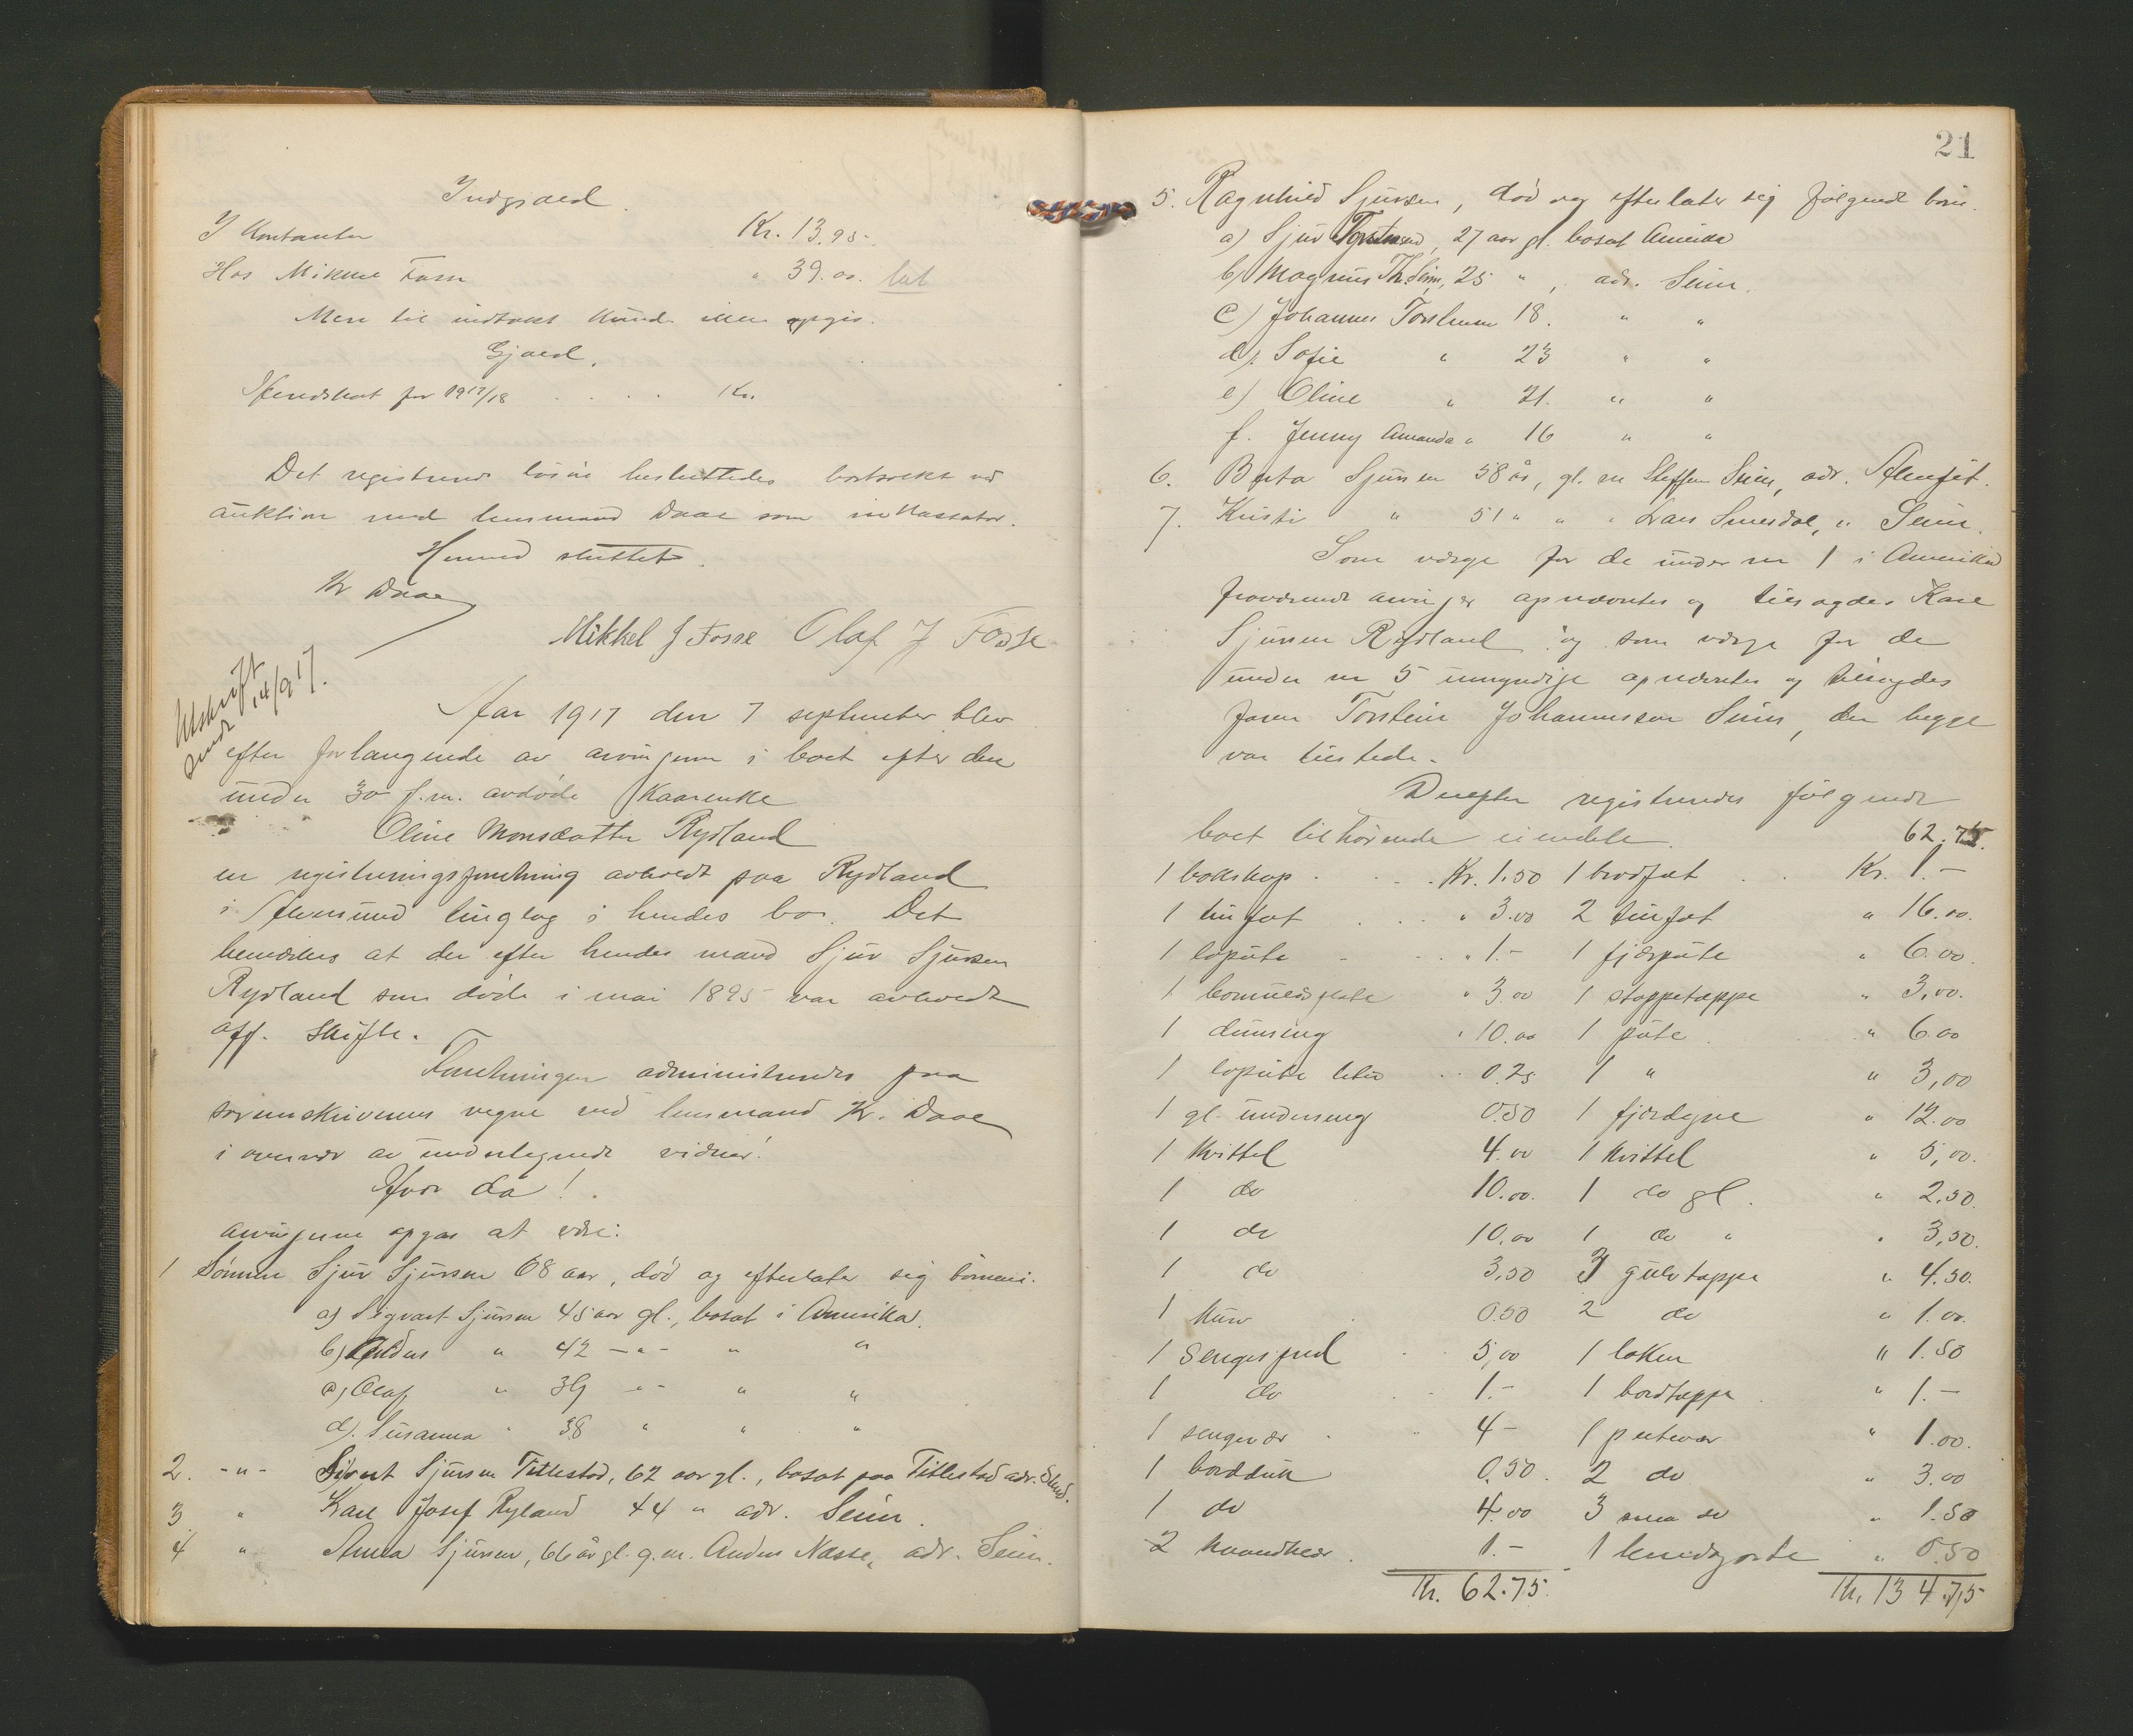 Indgjæld.
I Kontanter Kr. 13.95
Hos Mikkel Fosse " 39.00
Mere til indtækt kunde ikke opgis.
Gjæld.
for 1917/18 . . . . Kr.
Det registrerte løsøre besluttedes bortsolgt ved
auktion med lensmand Daae som inkassator.
Hermed sluttet.
Kr Daae
Mikkel J Fosse Olaf J Fosse
Utskrift
sendt 14/9 17.
Aar 1917 den 7 september blev
efter forlangende av arvingerne i boet efter den
under 30 f.m. avdøde Kaarenke
Oline Monsdatter Rydland
en registreringsforretning avholdt paa Rydland
i tinglag i hendes bo. Det
bemerkes at der efter hendes mand Sjur Sjursen
Rydland som døde i mai 1895 var avholdt
off. skifte.
Forretningen administreredes paa
sorenskriverens vegne ved lensmand Kr. Daae
i overvær av undertegnede vidner!
Hvor da!
Arvingerne opgas at være:
1 Sønnen Sjur Sjursen 68 aar, død og efterlater sig børnene:
a) Sigvart Sjursen 45 aar gl., bosat i Amerika.
b) Anders " 42 -"- " "
c) Olaf " 39 -"- " "
d). Susanna " 38 " " "
2. -"- Sivert Sjursen Titlestad, 62 aar gl., bosat paa Titlestad adr.
3 " Karl Josef Ryland 44 " adr. Seim.
4 " Anna Sjursen, 66 år gl. g.m. Anders Nesse, adr. Seim.
21
5. Ragnhild Sjursen, død og efterlater sig følgende børn.
a) Sjur Torsteinsen, 27 aar gl. bosat Amerika
b) Magnus Th. Seim, 25 " , adr. Seim.
c) Johannes Torsteinsen 18. " "
d). Sofie " 23 " "
e) Oline " 21. " "
f. Jenny Amanda " 16 " "
6. Berta Sjursen 58 år, gl. m Steffen Seim, adr.
7. Kristi " 51 " " " Lars Smesdal, " Seim.
Som værge for de under nr 1 i Amerika
fraværende arvinger opnævntes og tilsagdes Karl
Sjursen Rydland og som værge for de
under nr 5 umyndige opnævntes og tilsagdes
faren Torstein Johannessen Seim, der begge
var tilstede.
Derefter registreredes følgende
boet tilhørende eiendele. 62.75.
1 bokskap . . . Kr. 1.50 1 brødfat . . Kr. 1.-
1 tinfat . . . " 3.00 2 tinfat " 16.00.
1 lopute - . . " 1.- 1 fjærpute " 6.00.
1 " 3.00 1 stoppetæppe " 3,00.
1 dunseng " 10.00 1 pute . . " 6.00
1 lopute liten . . 0.25 1 " " 3,00
1 gl. underseng 0.50 1 fjærdyne " 12.00
1 Kvittel 4.00 1 Kvittel " 5,00.
1 do 10.00. 1 do gl. " 2.50
1 do 10,00 1 do " " 3,50.
1 do 3,50 3 gulvtæpper " 4.50.
1 0.50 2 do " 1.00.
1 Sengespred . 5,00 1 laken " 1.50
1 do . . 1.- 1 bordtæppe . " 1.-
1 sengevær . . 4- 1 putevar " 1.00.
1 bordduk 0.50. 2 do " 3.00
1 do 4.00 3 smaa do " 1.50
2 haandklær . 1.- 1 " 0.50
Kr. 62.75. Kr. 134.75